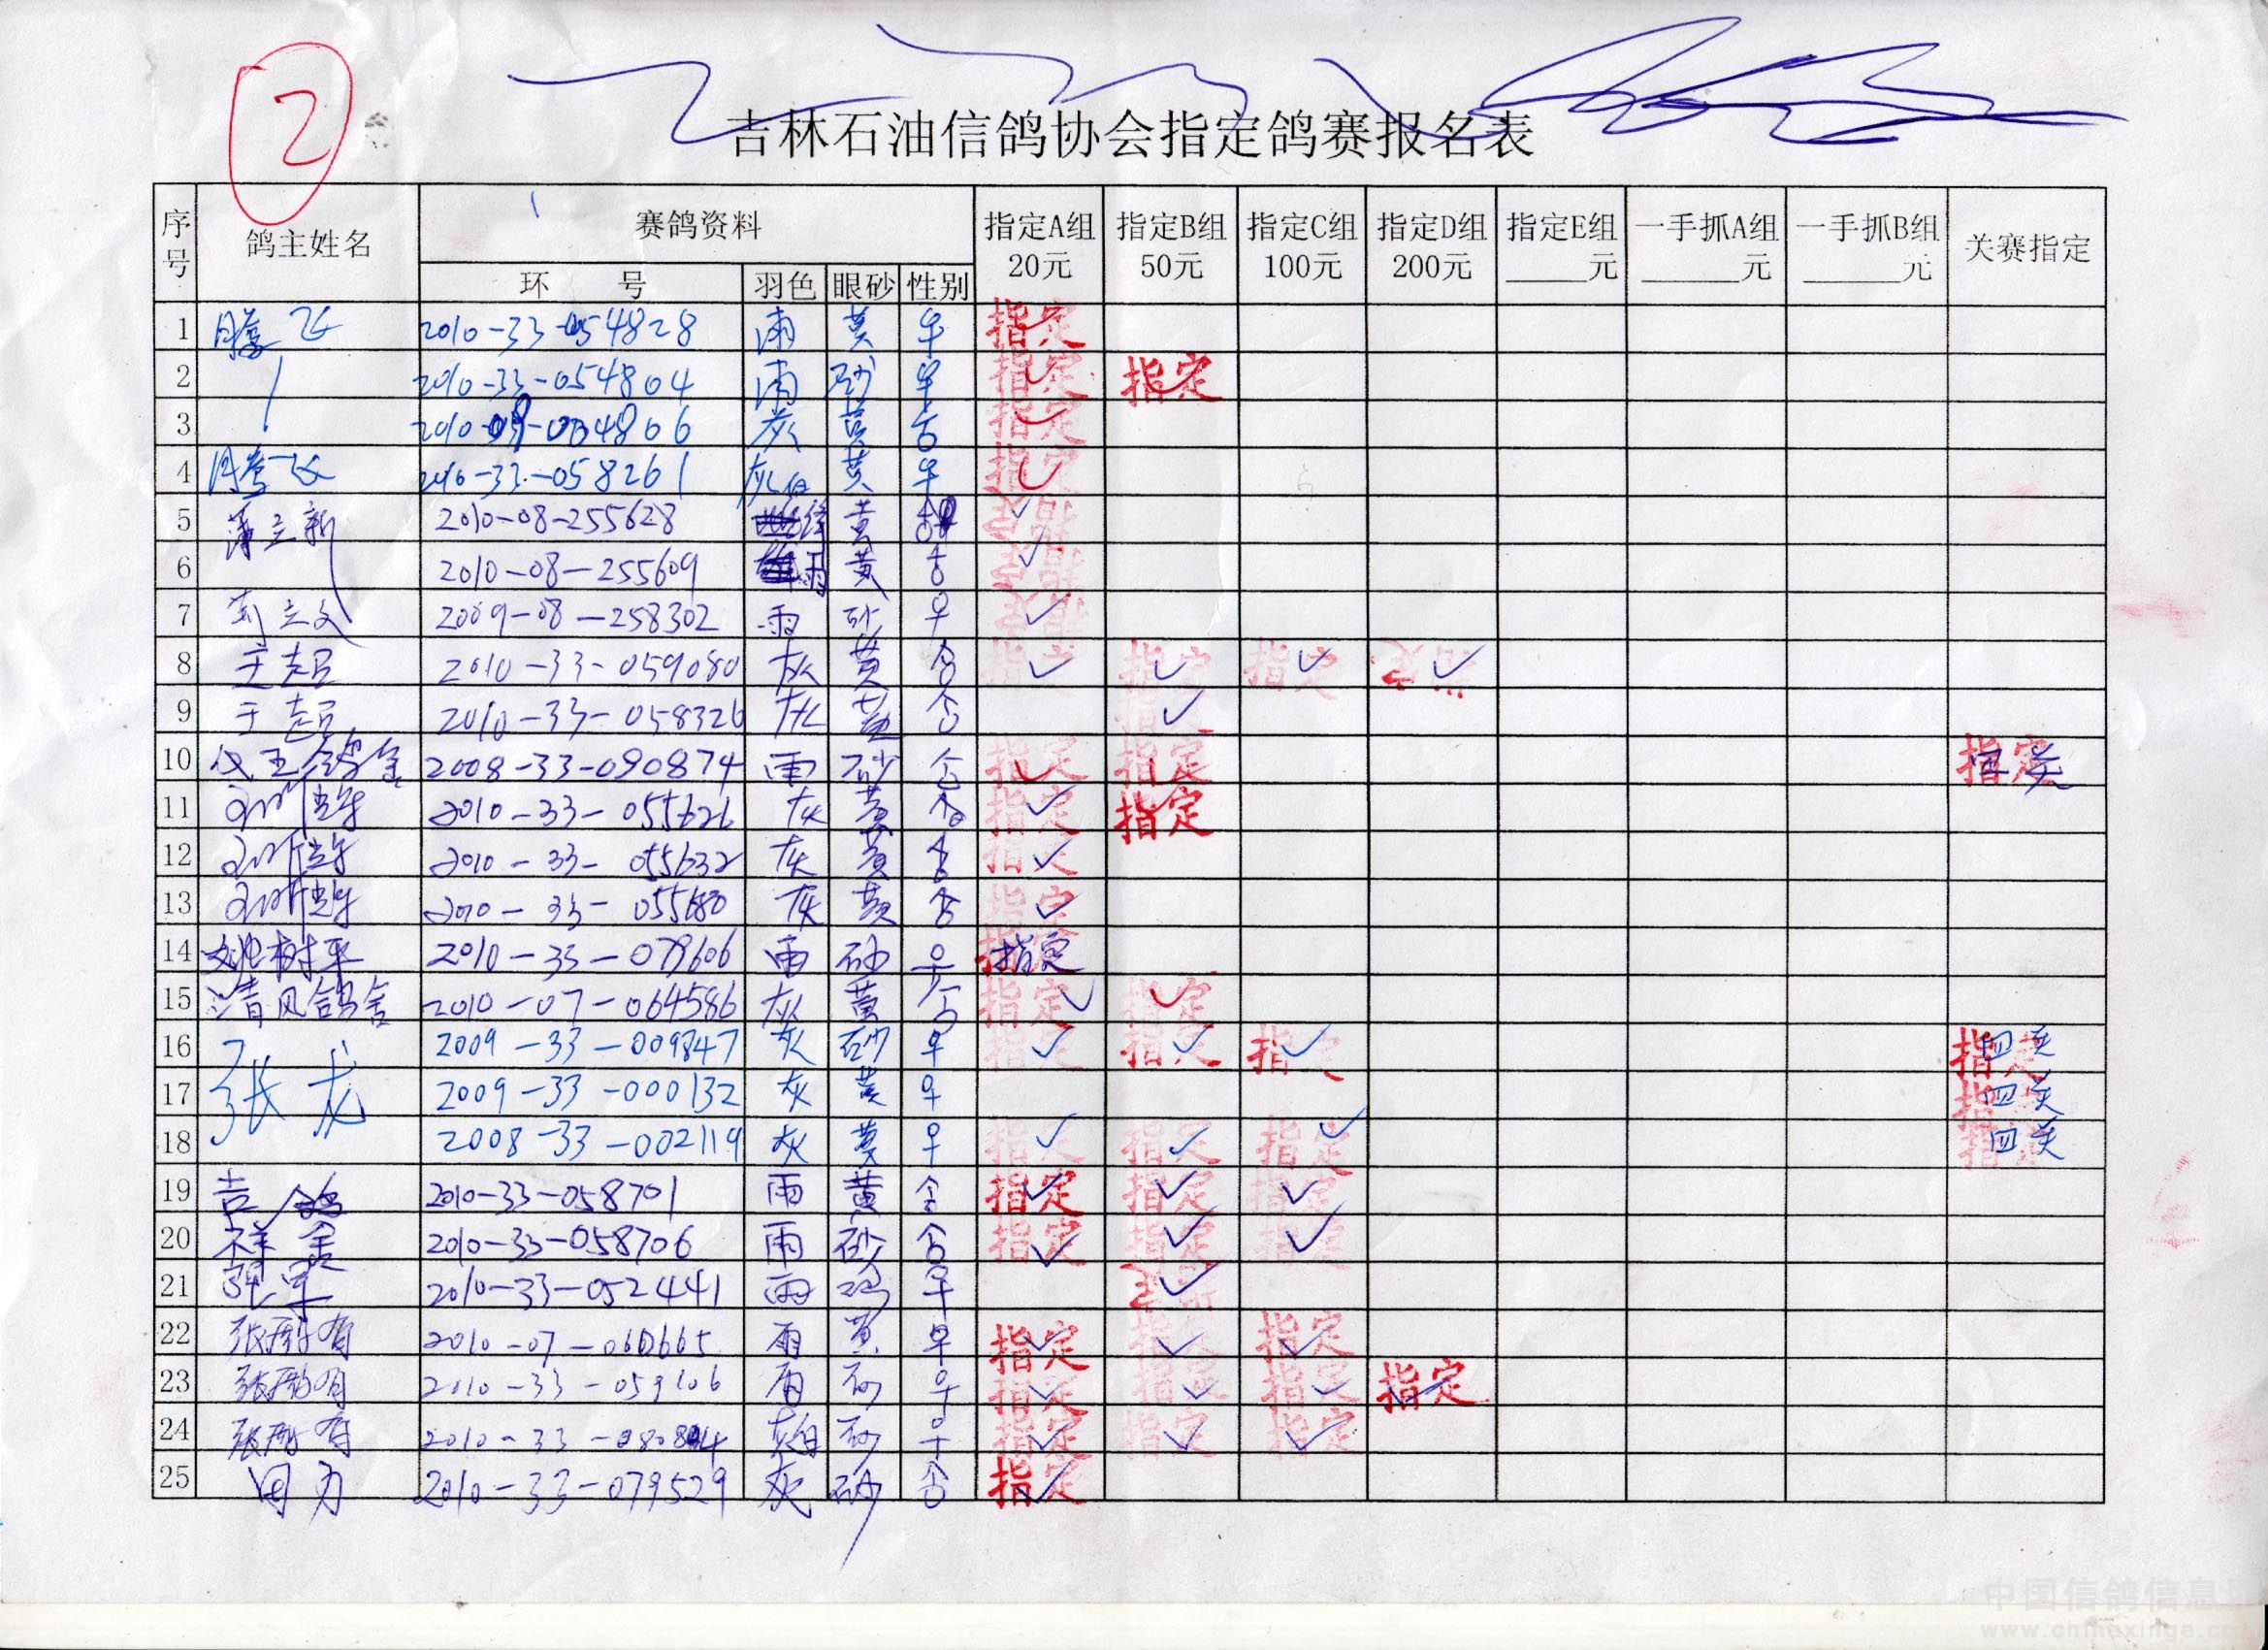 2
吉林石油信鸽协会指定鸽赛报名表
序号 鸽主姓名 赛鸽资料 指定A组 20元 指定B组 50元 指定C组 100元 指定D组 200元 指定E组 ____元 一手抓A组 ____元 一手抓B组 ____元 关赛指定
环 号 羽色 眼砂 性别
1 腾飞 2010-33-054828 黄 指定
2 2010-33-054804 砂 指定 指定
3 灰 黄 指定
4 腾飞 2010-33-058261 灰白 黄 指定
5 2010-08-255628 黄 指定
6 2010-08-255609 雨 黄 指定
7 2009-08-258302 雨 砂 ✓
8 于超 2010-33-059080 灰 黄 指定 ✓ 指定 ✓ 指定 ✓ 指定 ✓
9 于超 2010-33-058326 灰 黄 ✓
10 2008-33-090874 雨 砂 指定 指定 指定 四关
11 2010-33-055626 灰 黄 指定 ✓ 指定
12 2010-33-055632 灰 黄 指定 ✓
13 2010-33- 灰 黄 指定 ✓
14 姚树平 2010-33-079606 雨 砂 指定
15 清风鸽舍 2010-07-064586 灰 黄 指定 ✓ 指定 ✓
16 张龙 2009-33-009847 灰 砂 指定 ✓ 指定 ✓ 指定 ✓ 指定 四关
17 2009-33-000132 灰 黄 指定 四关
18 2008-33-002119 灰 黄 指定 ✓ 指定 ✓ 指定 ✓ 指定 四关
19 吉祥鸽舍 2010-33-058701 雨 黄 指定 ✓ 指定 ✓ 指定 ✓
20 2010-33-058706 雨 砂 指定 ✓ 指定 ✓ 指定 ✓
21 张军 2010-33-052441 雨 ✓
22 2010-07-060665 雨 黄 指定 ✓ 指定 ✓ 指定 ✓
23 2010-33-059106 雨 砂 指定 ✓ 指定 ✓ 指定 ✓ 指定 ✓
24 2010-33- 灰白 砂 指定 ✓ 指定 ✓ 指定 ✓
25 田力 2010-33-079529 灰 砂 指定 ✓
中国信鸽信息
www.chinaxinge.c